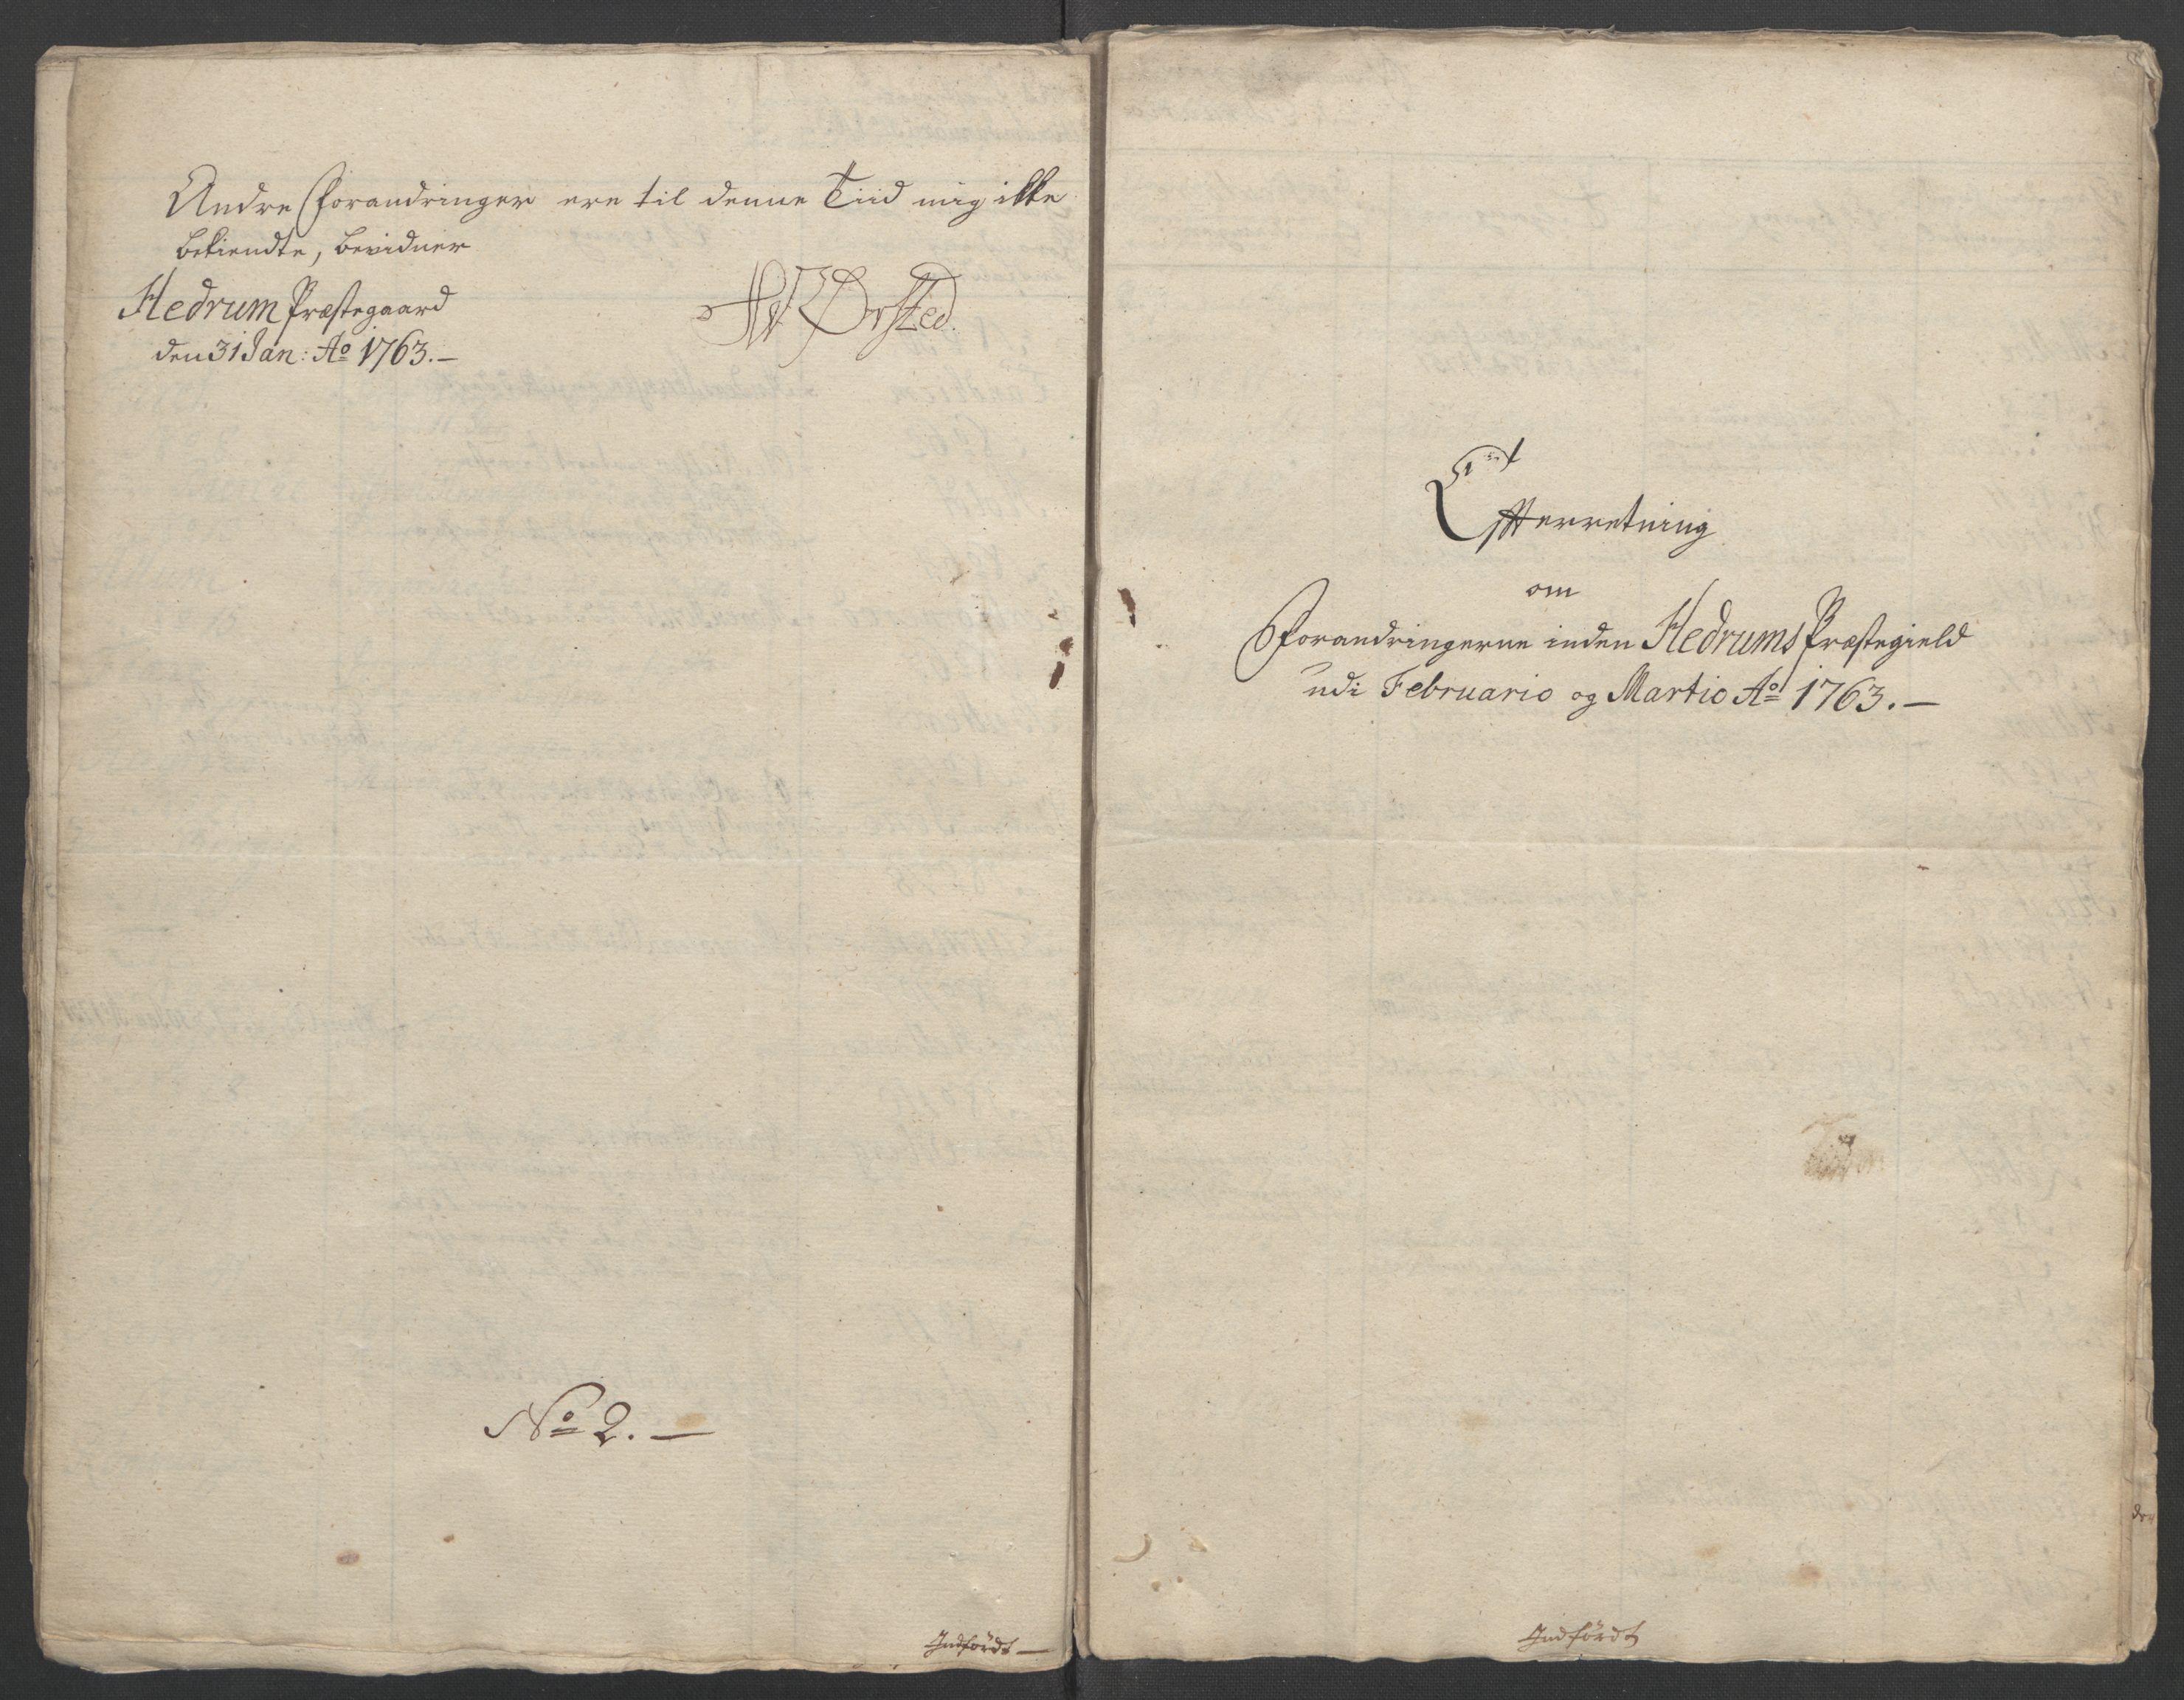 Andre Forandringer ere til denne Tiid mig ikke
bekiendte, bevidner
Hedrum Præstegaard
den 31 Jan: Ao 1763.—
Ørsted.
No 2.—
Indfördt—
Efterretning
om
Forandringerne inden Hedrums Præstegield
udi Februario og Martio Ao 1763.—
Indfördt